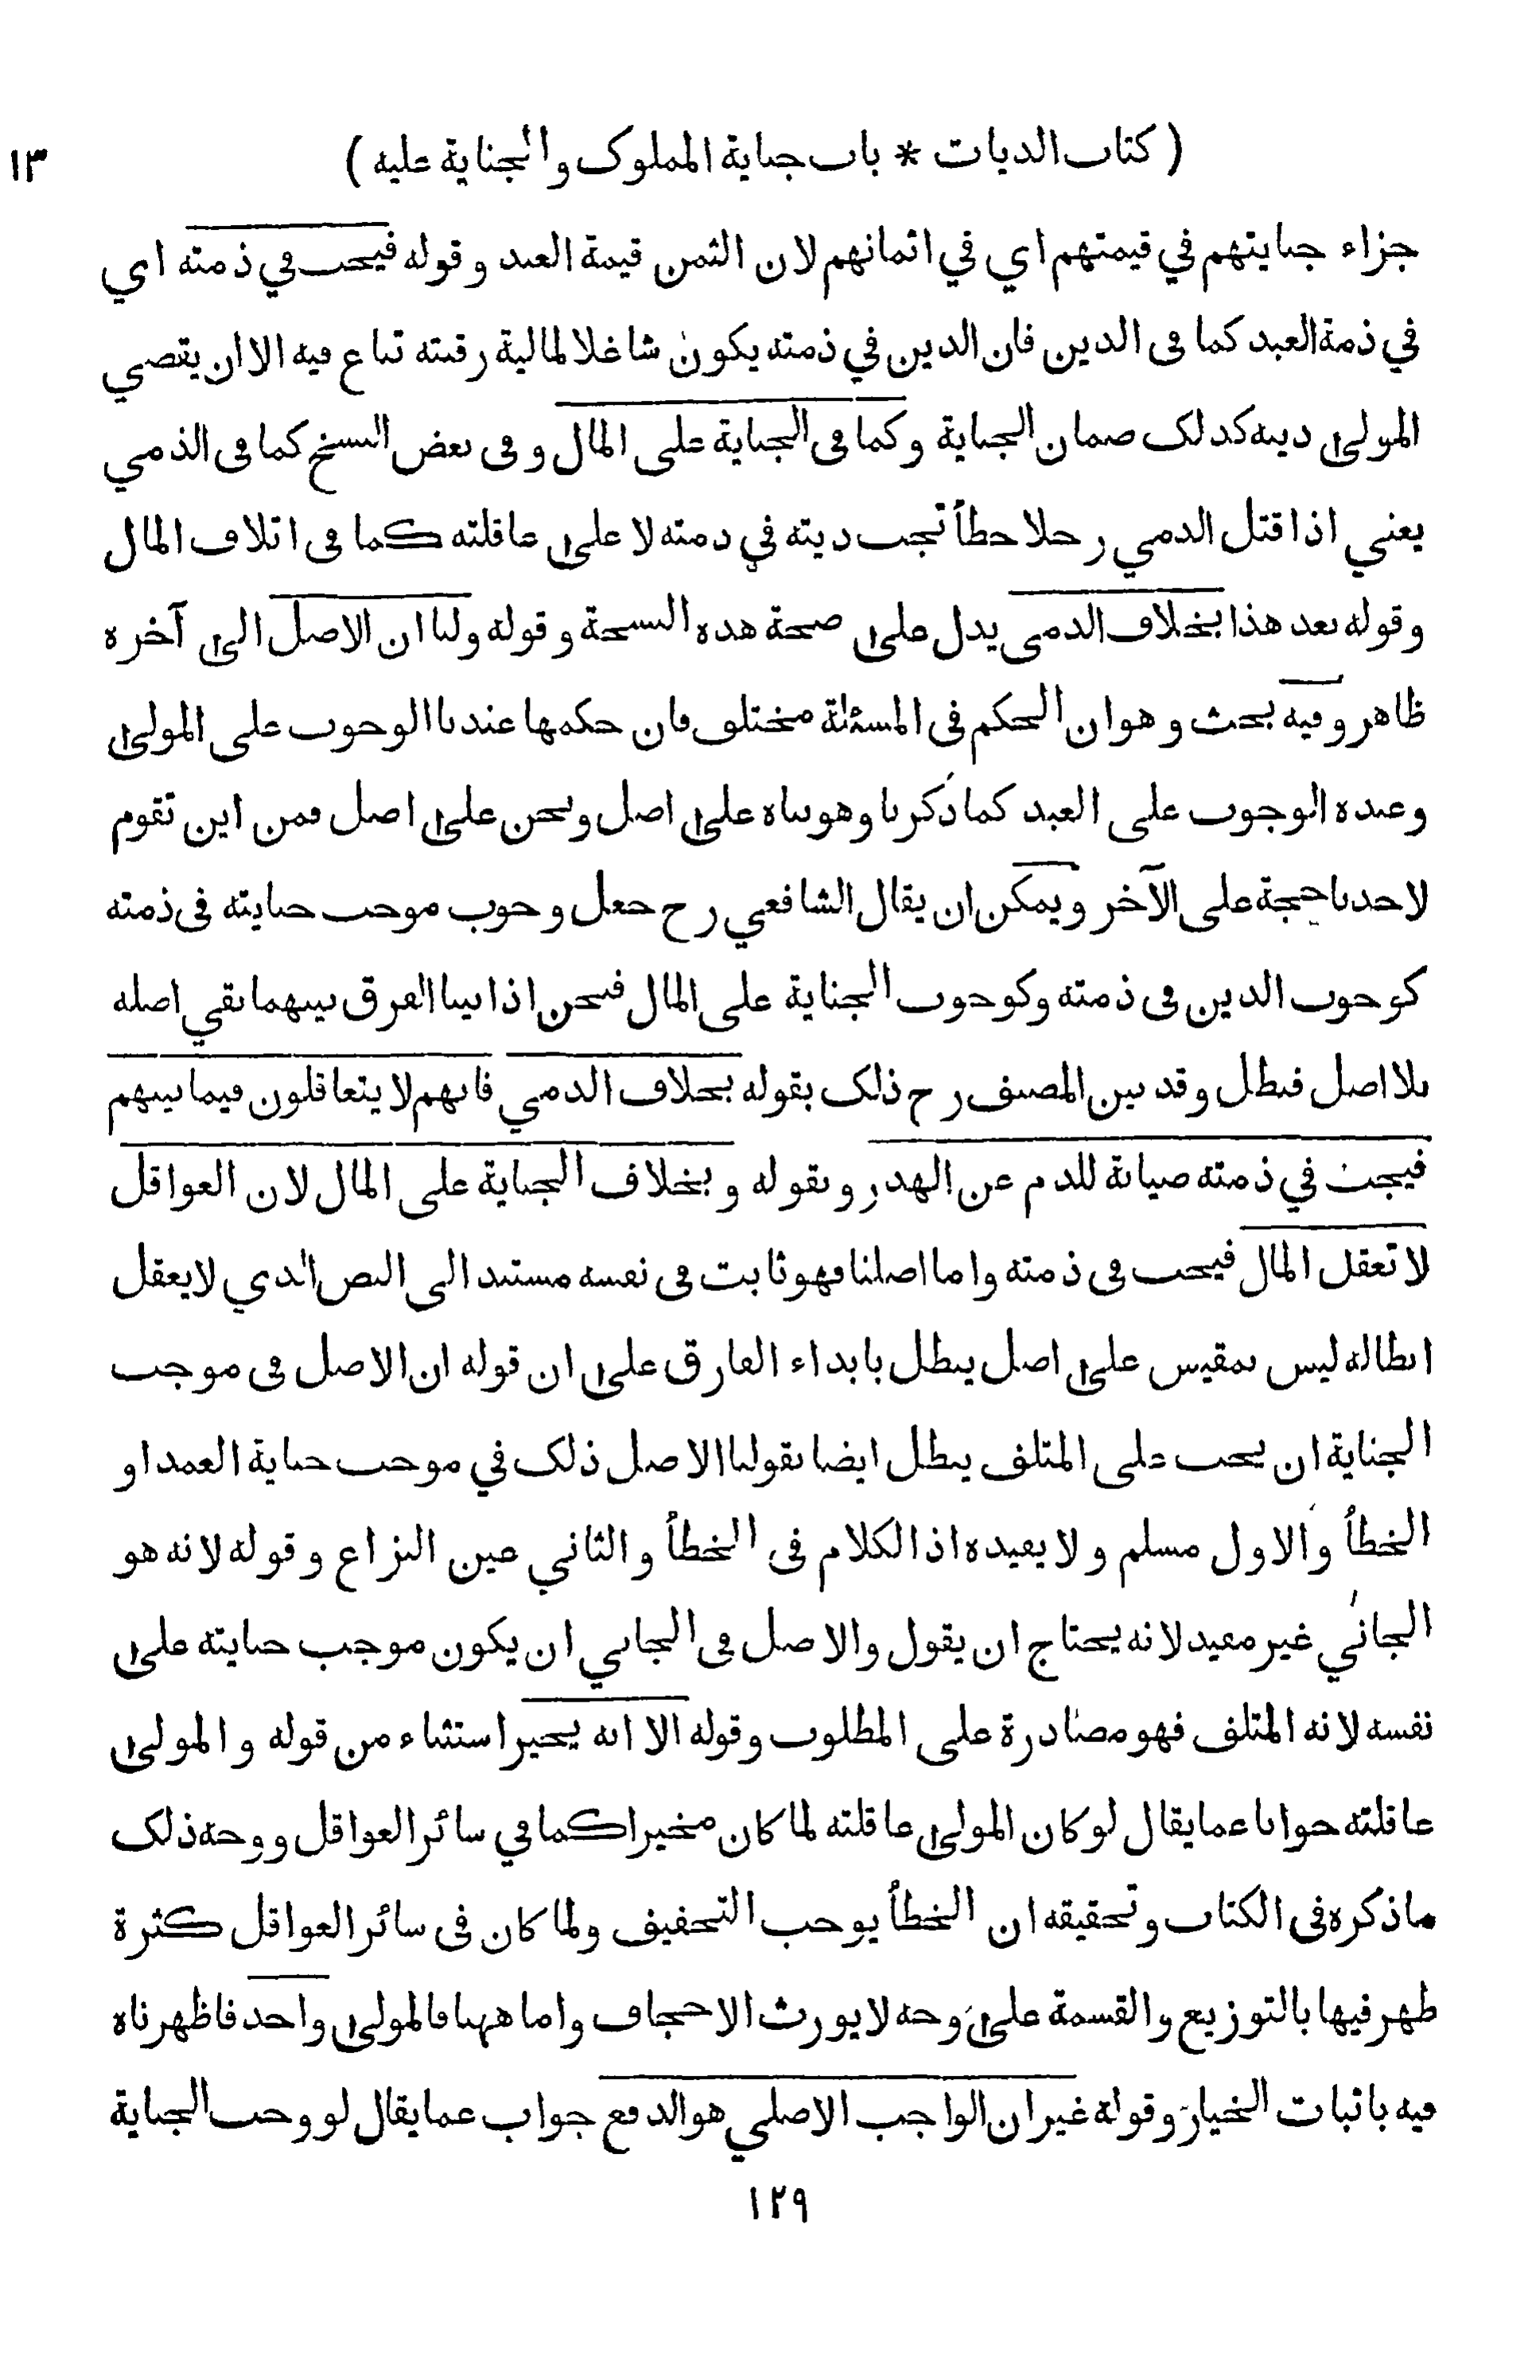 ( كتاب الديات * باب جناية المملوك والجناية عليه )
١٣
جزاء جنايتهم في قيمتهم اي في اثمانهم لان الثمن قيمة العبد وقوله فيجب في ذمته اي
في ذمة العبد كما في الدين فان الدين في ذمته يكون شاغلا لمالية رقبته تباع فيه الا ان يقضي
المولى دينه كذلك ضمان الجناية وكما في الجناية على المال وفي بعض النسخ كما في الذمي
يعني اذا قتل الذمي رجلا خطأ تجب ديته في ذمته لا على عاقلته كما في اتلاف المال
وقوله بعد هذا بخلاف الذمي يدل على صحة هذه النسخة وقوله ولنا ان الاصل الى آخره
ظاهر وفيه بحث وهو ان الحكم في المسئلة مختلف فان حكمها عندنا الوجوب على المولى
وعنده الوجوب على العبد كما ذكرنا وهو بناه على اصل ونحن على اصل فمن اين تقوم
لاحدنا حجة على الآخر ويمكن ان يقال الشافعي رح جعل وجوب موجب جنايته في ذمته
كوجوب الدين في ذمته وكوجوب الجناية على المال فنحن اذا بينا الفرق بينهما بقي اصله
بلا اصل فبطل وقد بين المصنف رح ذلك بقوله بخلاف الذمي فانهم لا يتعاقلون فيما بينهم
فيجب في ذمته صيانة للدم عن الهدر وبقوله وبخلاف الجناية على المال لان العواقل
لا تعقل المال فيجب في ذمته واما اصلنا فهو ثابت في نفسه مستند الى النص الذي لا يعقل
ابطاله ليس بمقيس على اصل يبطل بابداء الفارق على ان قوله ان الاصل في موجب
الجناية ان يجب على المتلف يبطل ايضا بقولنا الاصل ذلك في موجب جناية العمد او
الخطأ والاول مسلم ولا يفيده اذ الكلام في الخطأ والثاني عين النزاع وقوله لانه هو
الجاني غير مفيد لانه يحتاج ان يقول والاصل في الجاني ان يكون موجب جنايته على
نفسه لانه المتلف فهو مصادرة على المطلوب وقوله الا انه يخير استثناء من قوله والمولى
عاقلته جوابا عما يقال لو كان المولى عاقلته لما كان مخيرا كما في سائر العواقل ووجه ذلك
ما ذكره في الكتاب وتحقيقه ان الخطأ يوجب التخفيف ولما كان في سائر العواقل كثرة
ظهر فيها بالتوزيع والقسمة على وجه لا يورث الاجحاف واما ههنا فالمولى واحد فاظهرناه
فيه باثبات الخيار وقوله غير ان الواجب الاصلي هو الدفع جواب عما يقال لو وجب الجناية
١٢٩